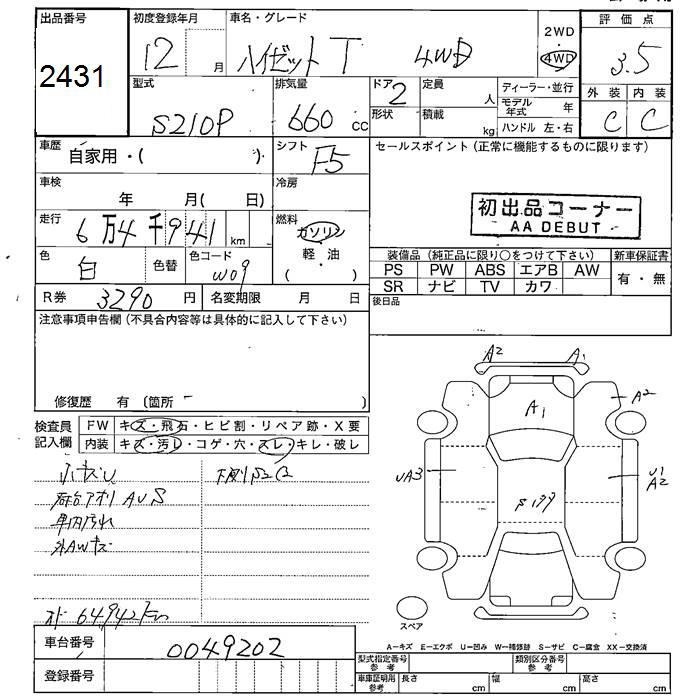 出品番号
2431
初度登録年月
12 月
車名・グレード
ハイゼットT 4WD
2WD
・
4WD
評価点
3.5
外装 内装
C C
型式
S210P
排気量
660 cc
ドア
2
形状
定員
人
積載
kg
ディーラー・並行
モデル年式 年
ハンドル 左・右
車歴
自家用・( )
シフト
F5
セールスポイント(正常に機能するものに限ります)
車検
年 月( 日)
冷房
初出品コーナー
AA DEBUT
走行
6万4千941 km
燃料
ガソリン
軽・油
( )
色
白
色替
色コード
W09
装備品(純正品に限り○をつけて下さい)
PS PW ABS エアB AW
SR ナビ TV カワ
新車保証書
有・無
R券 3290 円
名変期限 月 日
後日品
注意事項申告欄(不具合内容等は具体的に記入して下さい)
修復歴 有(箇所 )
検査員記入欄
FW キズ・飛石・ヒビ割・リペア跡・X要
内装 キズ・汚レ・コゲ・穴・スレ・キレ・破レ
小キズU
下廻りS2C
荷台アオリ AUS
車内汚れ
外AWキズ
オド 64,942km
車台番号
0049202
登録番号
A2 A1
A1
A2
UA3
U1
A2
スペア
A-キズ E-エクボ U-凹み W-補修跡 S-サビ C-腐食 XX-交換済
型式指定番号
参考
類別区分番号
参考
車庫証明用
参考
長さ cm
幅 cm
高さ cm